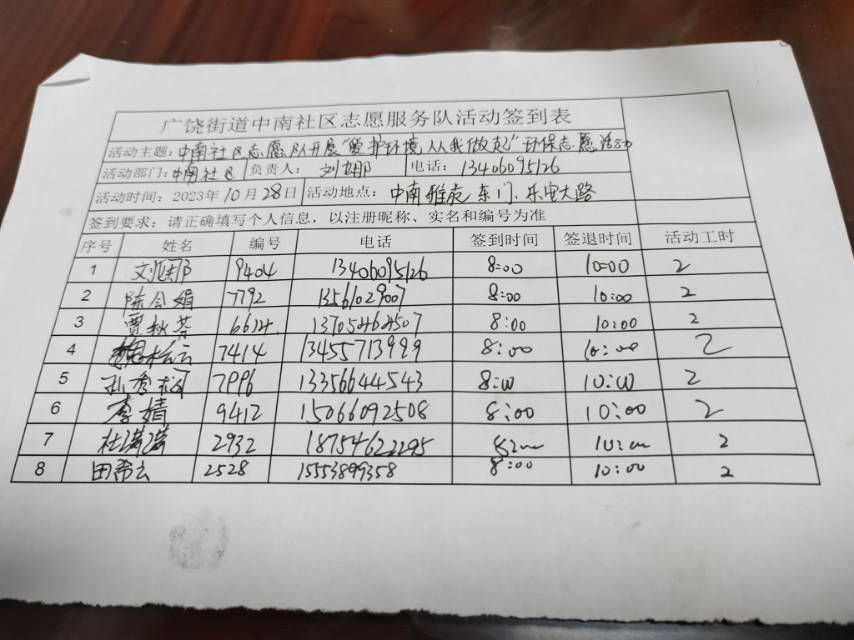 广饶街道中南社区志愿服务队活动签到表
活动主题: 中南社区志愿队开展"爱护环境,从我做起"环保志愿活动
活动部门: 中南社区 负责人: 刘娜 电话: 13406095126
活动时间: 2023年10月28日 活动地点: 中南雅苑东门、乐安大路
签到要求: 请正确填写个人信息，以注册昵称、实名和编号为准
序号 姓名 编号 电话 签到时间 签退时间 活动工时
1 刘娜 9404 13406095126 8:00 10:00 2
2 陈会娟 7792 13561029007 8:00 10:00 2
3 贾秋芬 6624 13705464507 8:00 10:00 2
4 7414 13455713999 8:00 10:00 2
5 孙秀 7996 13356644543 8:00 10:00 2
6 李婧 9412 15066092508 8:00 10:00 2
7 杜潇潇 2932 18754622295 8:00 10:00 2
8 田希云 2528 15553899358 8:00 10:00 2